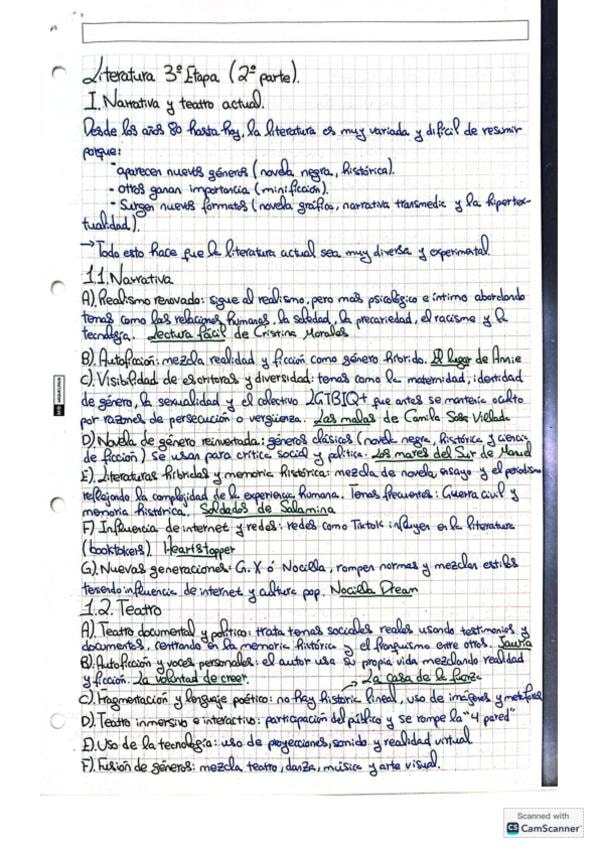 Literatura 3º Etapa (2º parte).
I. Narrativa y teatro actual.
Desde los años 80 hasta hoy, la literatura es muy variada y difícil de resumir
porque:
- aparecen nuevos géneros (novela negra, histórica).
- otros ganan importancia (minificción).
- Surgen nuevos formatos (novela gráfica, narrativa transmedia y la hipertex-
tualidad).
→ Todo esto hace que la literatura actual sea muy diversa y experimental.
1.1. Narrativa
A). Realismo renovado: sigue al realismo, pero más psicológico e íntimo abordando
temas como las relaciones humanas, la soledad, la precariedad, el racismo y la
tecnología. Lectura fácil de Cristina Morales
B). Autoficción: mezcla realidad y ficción como género híbrido. El lugar de Annie
C). Visibilidad de escritoras y diversidad: temas como la maternidad, identidad
de género, la sexualidad y el colectivo LGTBIQ+ que antes se mantenía oculto
por razones de persecución o vergüenza. Las malas de Camila Sosa Villada
D) Novela de género reinventada: géneros clásicos (novela negra, histórica y ciencia
de ficción) se usan para crítica social y política. Los mares del Sur de Manuel
E). Literaturas híbridas y memoria histórica: mezcla de novela ensayo y el periodismo
reflejando la complejidad de la experiencia humana. Temas frecuentes: Guerra civil y
memoria histórica. Soldados de Salamina
F) Influencia de internet y redes: redes como Tiktok influyen en la literatura
(booktokers). Heartstopper
G). Nuevas generaciones: G. X ó Nocilla, rompen normas y mezclan estilos
teniendo influencia de internet y cultura pop. Nocilla Dream
1.2. Teatro
A). Teatro documental y político: trata temas sociales reales usando testimonios y
documentos, centrando en la memoria histórica y el franquismo entre otros. Jauría
B). Autoficción y voces personales: el autor usa su propia vida mezclando realidad
y ficción. La voluntad de creer. → La casa de la fuerza
C). Fragmentación y lenguaje poético: no hay historia lineal, uso de imágenes y metáforas
D). Teatro inmersivo e interactivo: participación del público y se rompe la "4 pared"
E). Uso de la tecnología: uso de proyecciones, sonido y realidad virtual
F). Fusión de géneros: mezcla teatro, danza, música y arte visual.
Scanned with
CS CamScanner